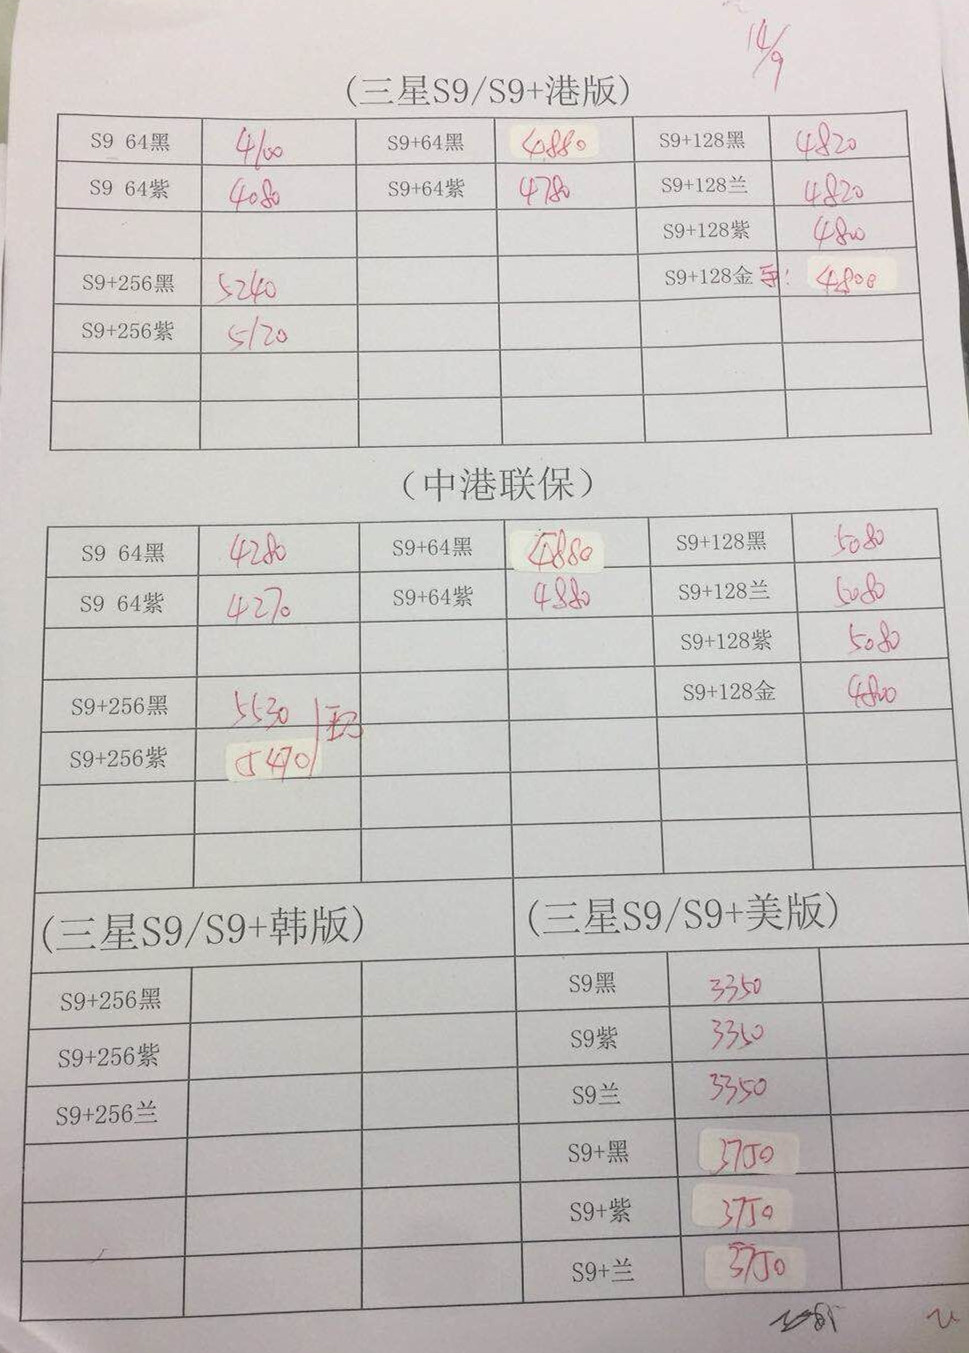 14/9
(三星S9/S9+港版)
S9 64黑 4100 S9+64黑 4880 S9+128黑 4820
S9 64紫 4080 S9+64紫 4780 S9+128兰 4820
S9+128紫 4800
S9+256黑 5240 S9+128金 4800
S9+256紫 5120
(中港联保)
S9 64黑 4280 S9+64黑 4880 S9+128黑 5080
S9 64紫 4270 S9+64紫 4880 S9+128兰 5080
S9+128紫 5080
S9+256黑 5530 S9+128金 4800
S9+256紫 5470
(三星S9/S9+韩版) (三星S9/S9+美版)
S9+256黑 S9黑 3350
S9+256紫 S9紫 3350
S9+256兰 S9兰 3350
S9+黑 3750
S9+紫 3750
S9+兰 3750